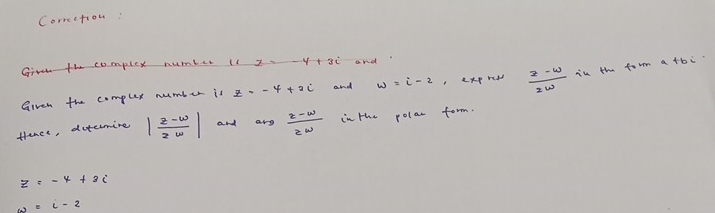 Correction :
Given the complex number is z = -4 + 3i and
Given the complex number is z = -4 + 3i and w = i - 2 , express \frac{z-w}{zw} in the form a + bi .
Hence, determine |\frac{z-w}{zw}| and arg \frac{z-w}{zw} in the polar form.
z = -4 + 3i
w = i - 2